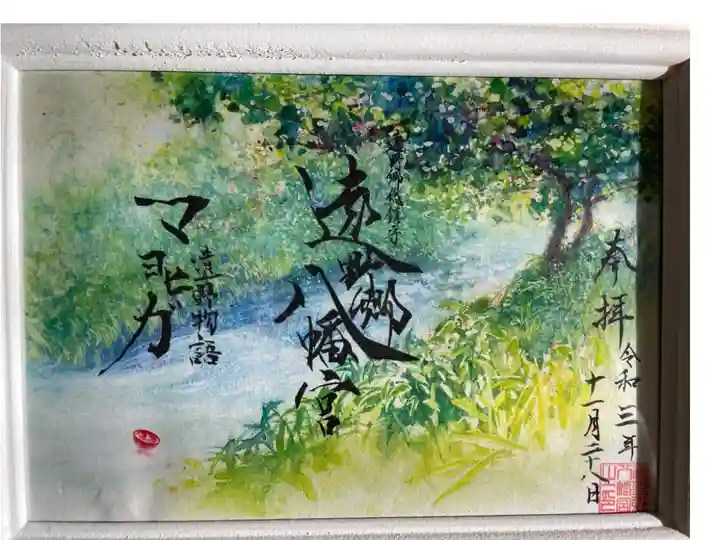 奉拝
令和三年
十一月二十八日
遠野郷
八幡宮
遠野物語
マヨヒガ